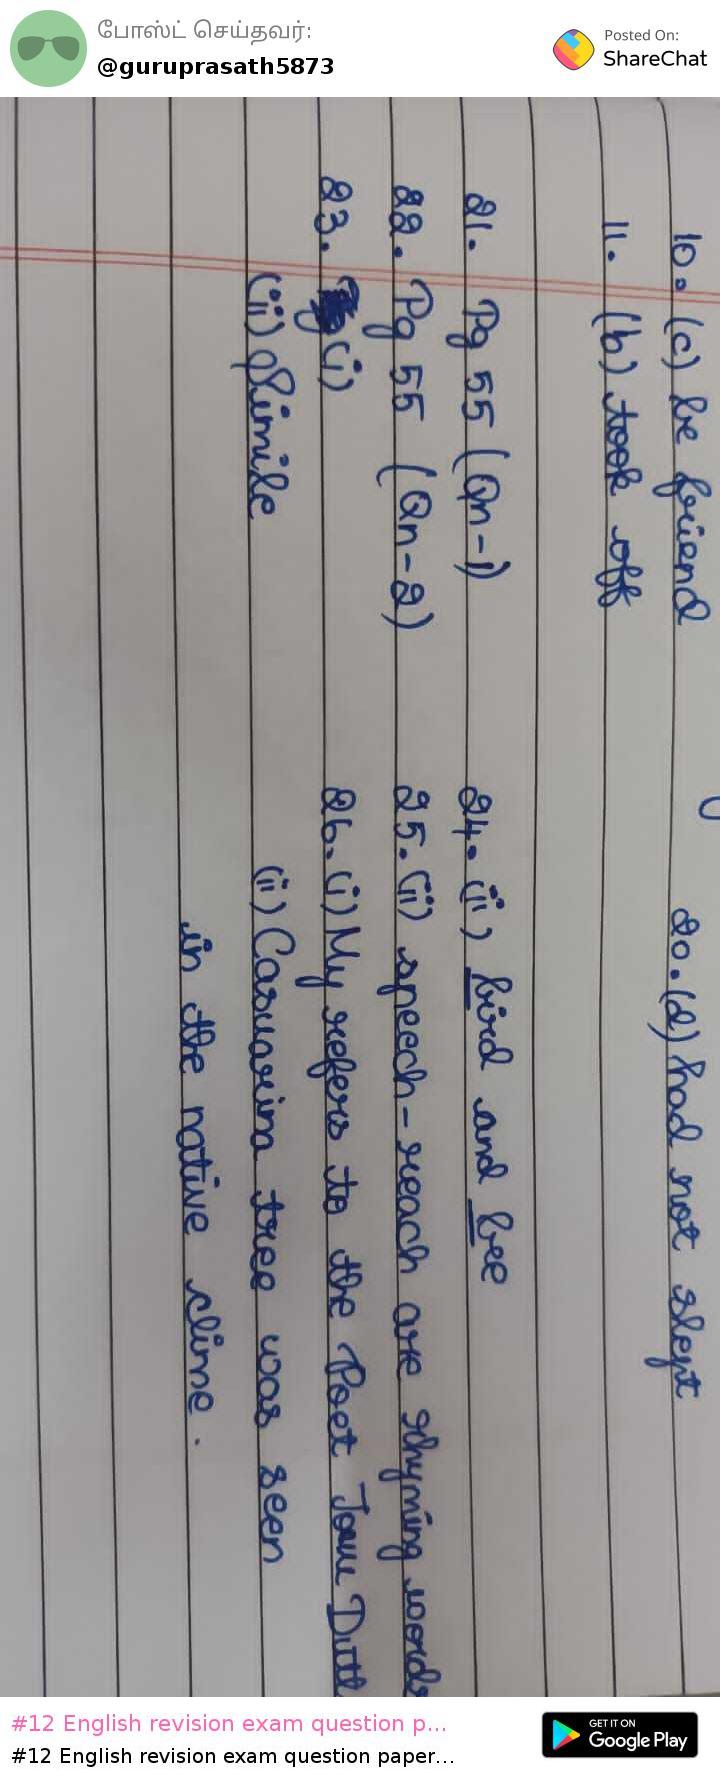 போஸ்ட் செய்தவர்:
@guruprasath5873
Posted On:
ShareChat
10. (c) be friend
11. (b) took off
20. (d) had not slept
21. Pg 55 (Qn-1)
22. Pg 55 (Qn-2)
23. (i)
(ii) Simile
24. (ii) bird and bee
25. (ii) speech-reach are rhyming words
26. (i) My refers to the Poet Toru Dutt
(ii) Casuarina tree was seen
in the native clime.
#12 English revision exam question p...
#12 English revision exam question paper...
GET IT ON
Google Play